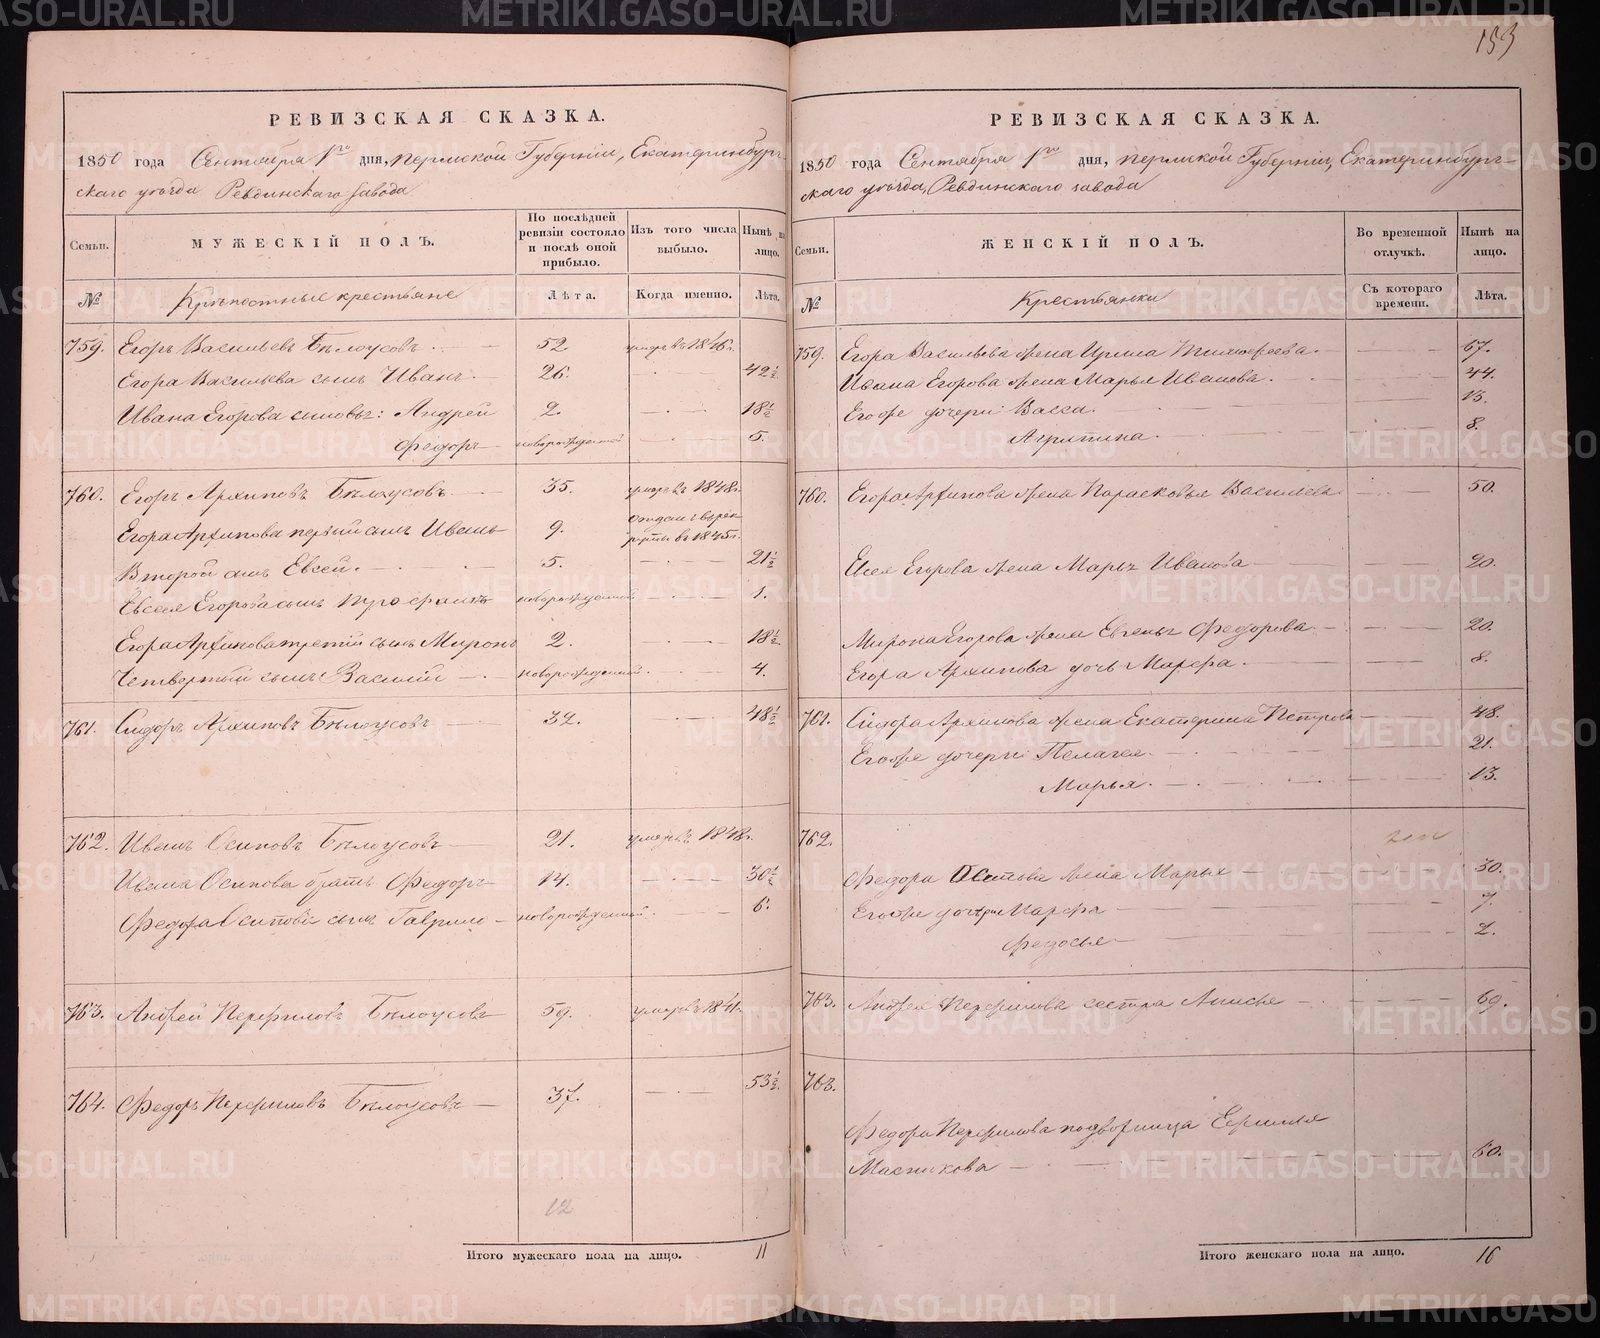 153
РЕВИЗСКАЯ СКАЗКА.
1850 года Сентября 1го дня, Пермской Губерніи, Екатеринбург-
скаго уѣзда Ревдинскаго завода
Семьи.
МУЖЕСКІЙ ПОЛЪ.
По послѣдней ревизіи состояло и послѣ оной прибыло.
Изъ того числа выбыло.
Нынѣ на лицо.
№
Крѣпостные крестьяне
Лѣта.
Когда именно.
Лѣта.
759. Егоръ Васильевъ Бѣлоусовъ. 52. умеръ въ 1846 г.
Егора Васильева сынъ Иванъ. 26. 42½
Ивана Егорова сыновья: Андрей 2. 18½
Федоръ новорожденной 5.
760. Егоръ Архиповъ Бѣлоусовъ. 35. умеръ въ 1848 г.
Егора Архипова первый сынъ Иванъ 9. отданъ въ рек-
руты въ 1845 г.
Второй сынъ Евсей. 5. 21½
Евсея Егорова сынъ новорожденной 1.
Егора Архипова третій сынъ Миронъ 2. 18½
Четвертый сынъ Василій новорожденный. 4.
761. Сидоръ Архиповъ Бѣлоусовъ 32. 48½
762. Иванъ Осиповъ Бѣлоусовъ 21. умеръ въ 1848 г.
Ивана Осипова братъ Федоръ 14. 30½
Федора Осипова сынъ Гаврило новорожденной. 6.
763. Андрей Перфиловъ Бѣлоусовъ 59. умеръ въ 1841.
764. Федоръ Перфиловъ Бѣлоусовъ 37. 53½
12
Итого мужескаго пола на лицо. 11
РЕВИЗСКАЯ СКАЗКА.
1850 года Сентября 1го дня, Пермской Губерніи, Екатеринбург-
скаго уѣзда, Ревдинскаго завода
Семьи.
ЖЕНСКІЙ ПОЛЪ.
Во временной отлучкѣ.
Нынѣ на лицо.
№
Крестьянки
Съ котораго времени.
Лѣта.
759. Егора Васильева жена Ирина Тимофеева. 67.
Ивана Егорова жена Марья Иванова. 44.
Егоже дочери: Васса. 13.
Агрипина. 8.
760. Егора Архипова жена Парасковья Васильева 50.
Евсея Егорова жена Марья Иванова 20.
Мирона Егорова жена Евгенья Федорова 20.
Егора Архипова дочь Марфа. 8.
761. Сидора Архипова жена Екатерина Петрова 48.
Егоже дочери: Пелагея. 21.
Марья. 13.
762.
Федора Осипова жена Марья 30.
Егоже дочери Марфа 7.
Федосья 2.
763. Андрея Перфилова сестра Анисья 69.
763.
Федора Перфилова подворница
Масникова 60.
Итого женскаго пола на лицо. 16
METRIKI.GASO-URAL.RU